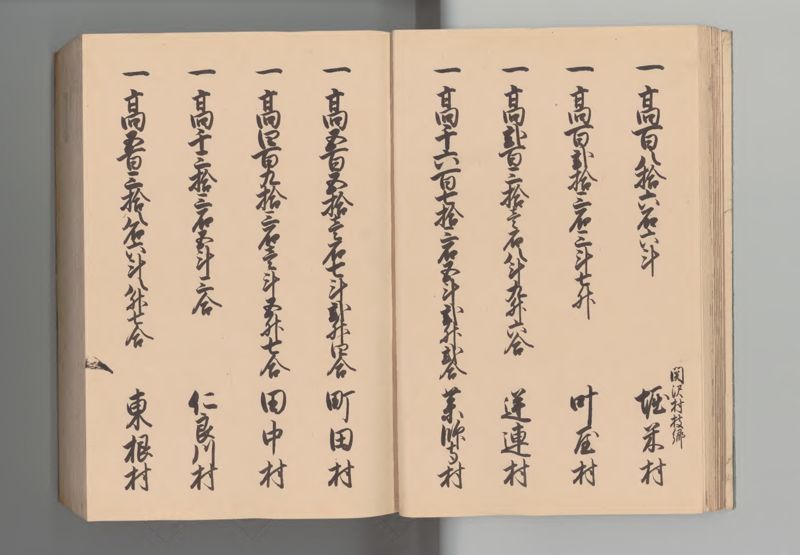 一 高百八拾六石六斗 関沢村枝郷 堀米村
一 高百弐拾三石三斗七升 叶屋村
一 高弐百三拾壱石八斗九升六合 連村
一 高千六百七拾三石五斗弐升弐合 薬師寺村
一 高五百五拾壱石七斗弐升四合 町田村
一 高四百九拾三石壱斗五升七合 田中村
一 高千三拾三石五斗三合 仁良川村
一 高五百三拾八石六斗八升七合 東根村